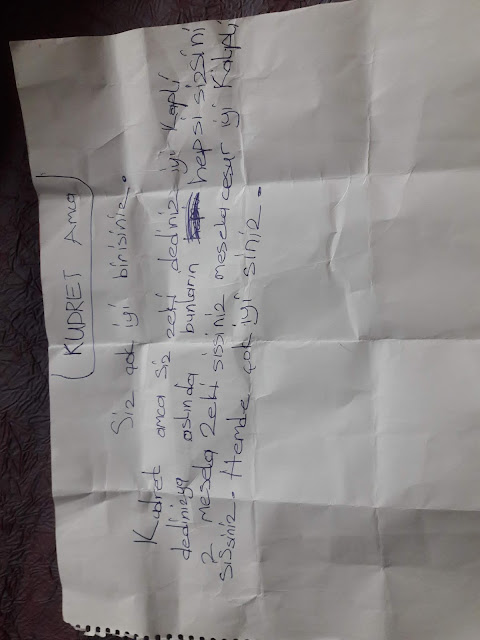 KUDRET AMCA
Siz çok iyi birisiniz.
Kudret amca siz zeki dediniz iyi Kapli
dediniz ya aslında bunların hepsi sizsini
z mesela zeki sissiniz mesela cesur iyi Kalpli
sissiniz. Hemde çok iyi siniz.